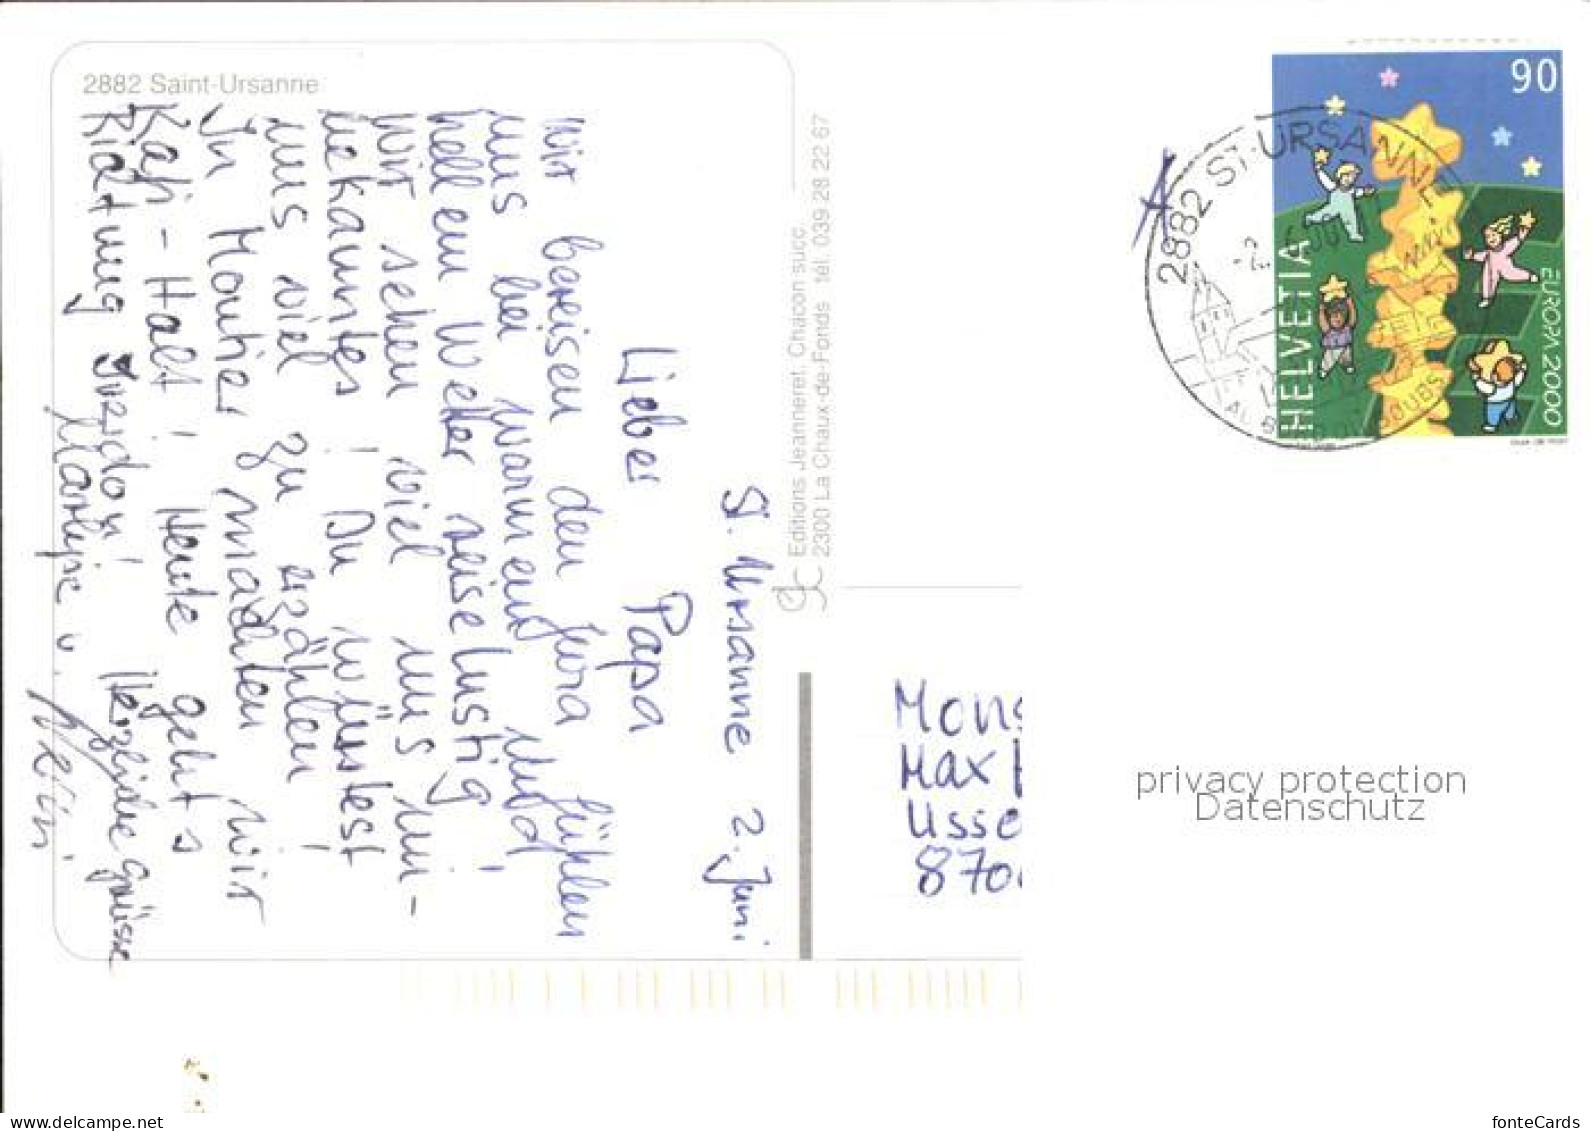 2882 Saint-Ursanne
St. Ursanne 2. Juni
Lieber Papa
Wir bereisen den Jura fühlen
uns bei warmem und
hellem Wetter reiselustig!
Wir sehen viel uns un-
bekanntes! Du wüsstest
uns viel zu erzählen!
In Moutier machten wir
Kafi-Halt! Heute geht's
Richtung Yverdon! Herzliche Grüsse
Marlyse u.
Editions Jeanneret, Chacon succ.
2300 La Chaux-de-Fonds tél. 039 28 22 67
90
HELVETIA
EUROPA 2000
2882 ST-URSANNE
DOUBS
Mons
Max
Usse
870
privacy protection
Datenschutz
www.delcampe.net
fonteCards